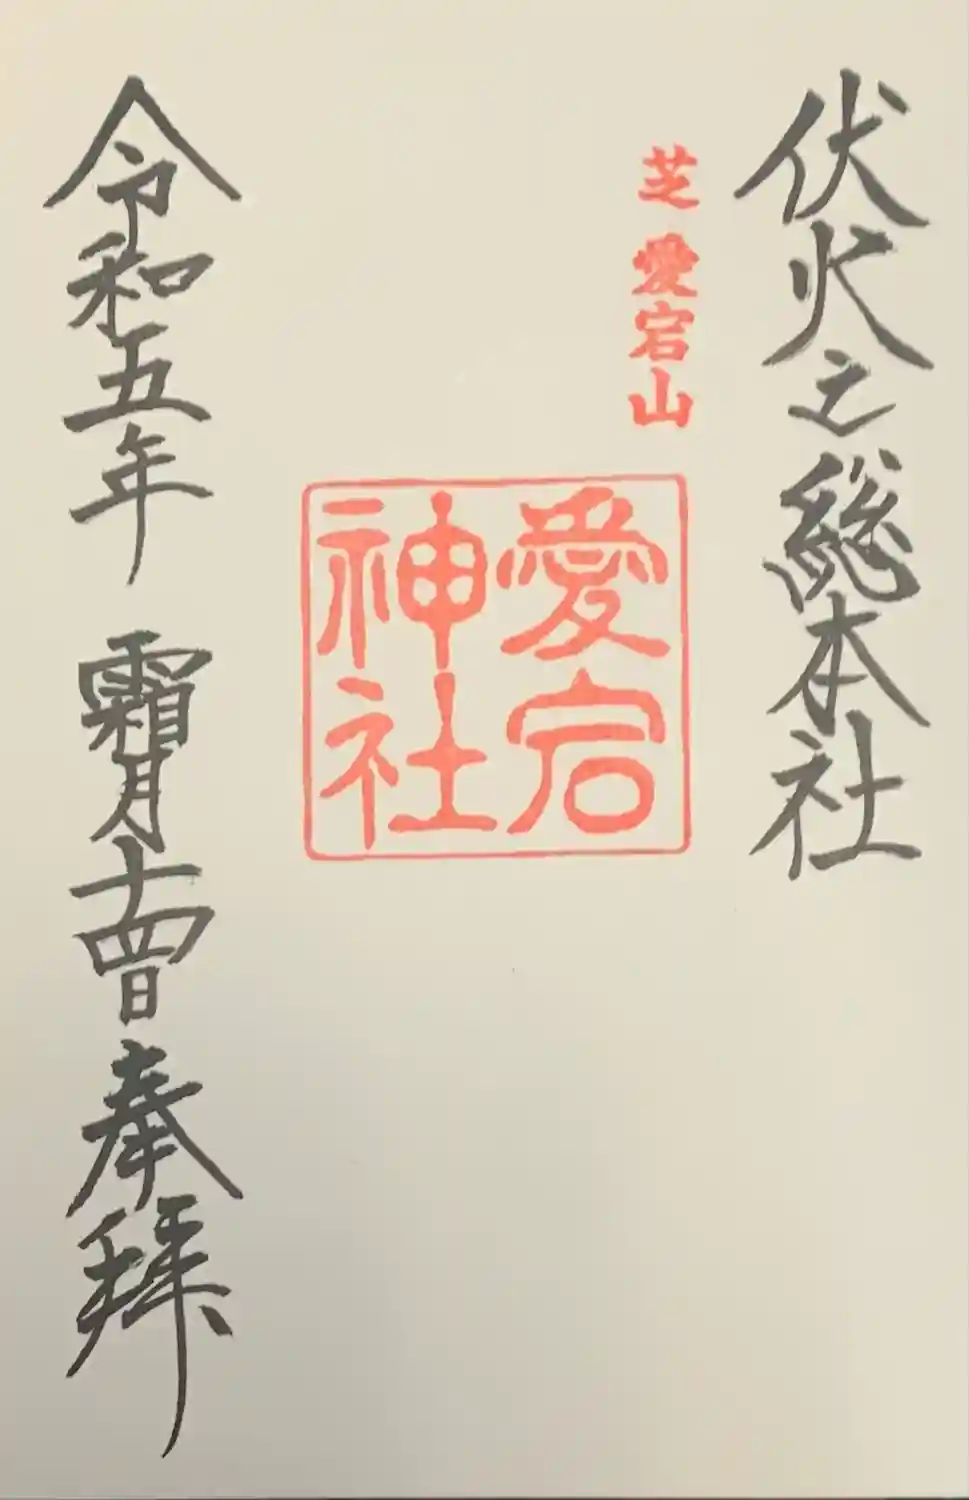 伏火之総本社
芝 愛宕山
愛宕
神社
令和五年 霜月十四日 奉拝